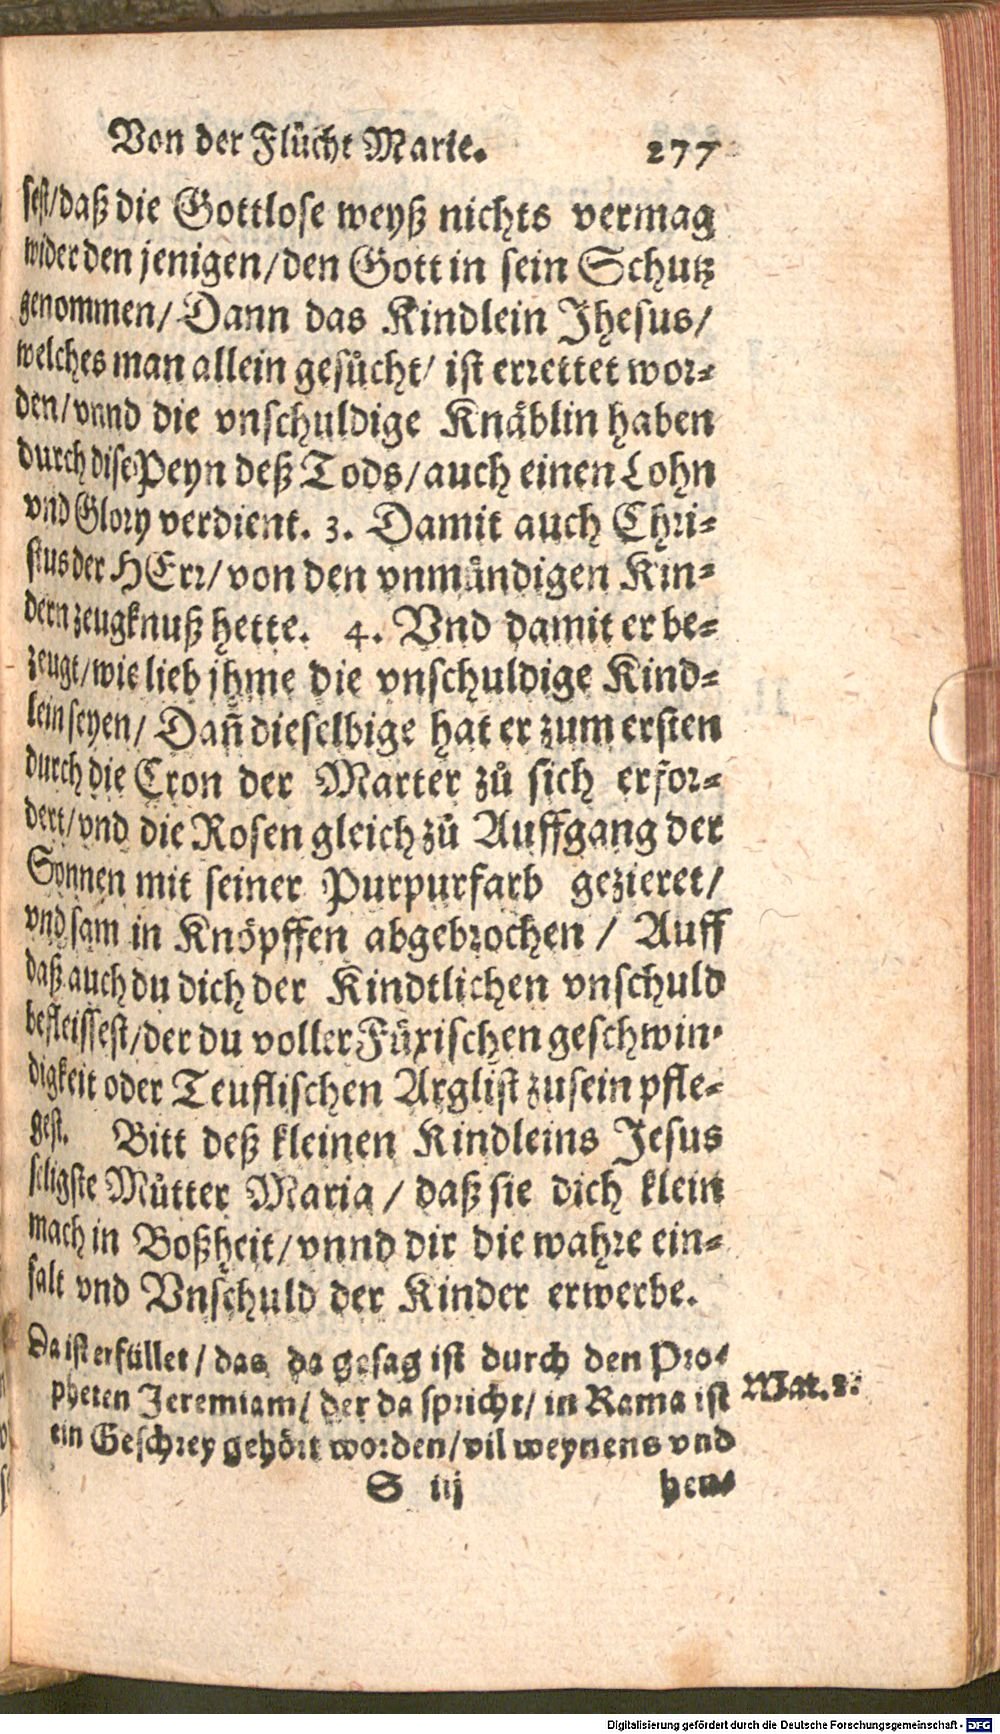 Von der Flůcht Marie. 277
sest/daß die Gottlose weyß nichts vermag
wider den jenigen/den Gott in sein Schutz
genommen/ Dann das Kindlein Jhesus/
welches man allein gesůcht/ ist errettet wor-
den/vnnd die vnschuldige Knäblin haben
durch dise Peyn deß Tods/auch einen Lohn
vnd Glory verdient. 3. Damit auch Chri-
stus der HErr/von den vnmündigen Kin-
dern zeugknuß hette. 4. Vnd damit er be-
zeugt/wie lieb jhme die vnschuldige Kind-
lein seyen/ Dañ dieselbige hat er zum ersten
durch die Cron der Marter zů sich erfor-
dert/vnd die Rosen gleich zů Auffgang der
Sonnen mit seiner Purpurfarb gezieret/
vnd sam in Knöpffen abgebrochen / Auff
daß auch du dich der Kindtlichen vnschuld
befleissest/der du voller Füxischen geschwin-
digkeit oder Teuflischen Arglist zusein pfle-
gest. Bitt deß kleinen Kindleins Jesus
seligste Můtter Maria / daß sie dich klein
mach in Boßheit/vnnd dir die wahre ein-
falt vnd Vnschuld der Kinder erwerbe.
Da ist erfüllet / das da gesag ist durch den Pro-
pheten Jeremiam/ der da spricht/ in Rama ist
ein Geschrey gehört worden/vil weynens vnd
Mat. 2.
S iij heu-
Digitalisierung gefördert durch die Deutsche Forschungsgemeinschaft - DFG